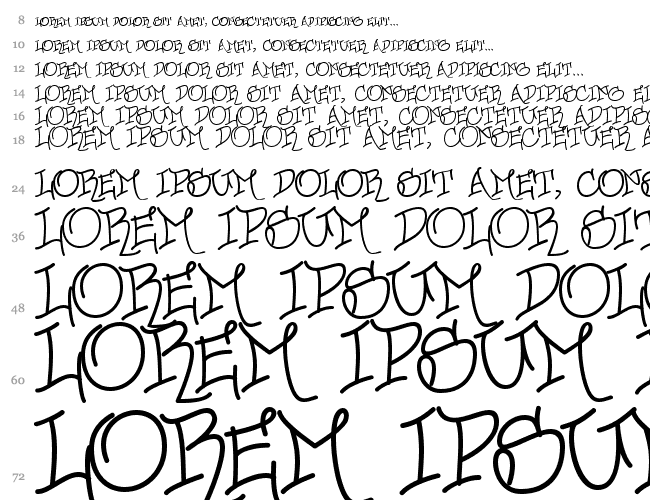 8 LOREM IPSUM DOLOR SIT AMET, CONSECTETUER ADIPISCING ELIT...
10 LOREM IPSUM DOLOR SIT AMET, CONSECTETUER ADIPISCING ELIT...
12 LOREM IPSUM DOLOR SIT AMET, CONSECTETUER ADIPISCING ELIT...
14 LOREM IPSUM DOLOR SIT AMET, CONSECTETUER ADIPISCING EL
16 LOREM IPSUM DOLOR SIT AMET, CONSECTETUER ADIPISC
18 LOREM IPSUM DOLOR SIT AMET, CONSECTETUER A
24 LOREM IPSUM DOLOR SIT AMET, CONS
36 LOREM IPSUM DOLOR SIT
48 LOREM IPSUM DOL
60 LOREM IPSUM
72 LOREM IPSU